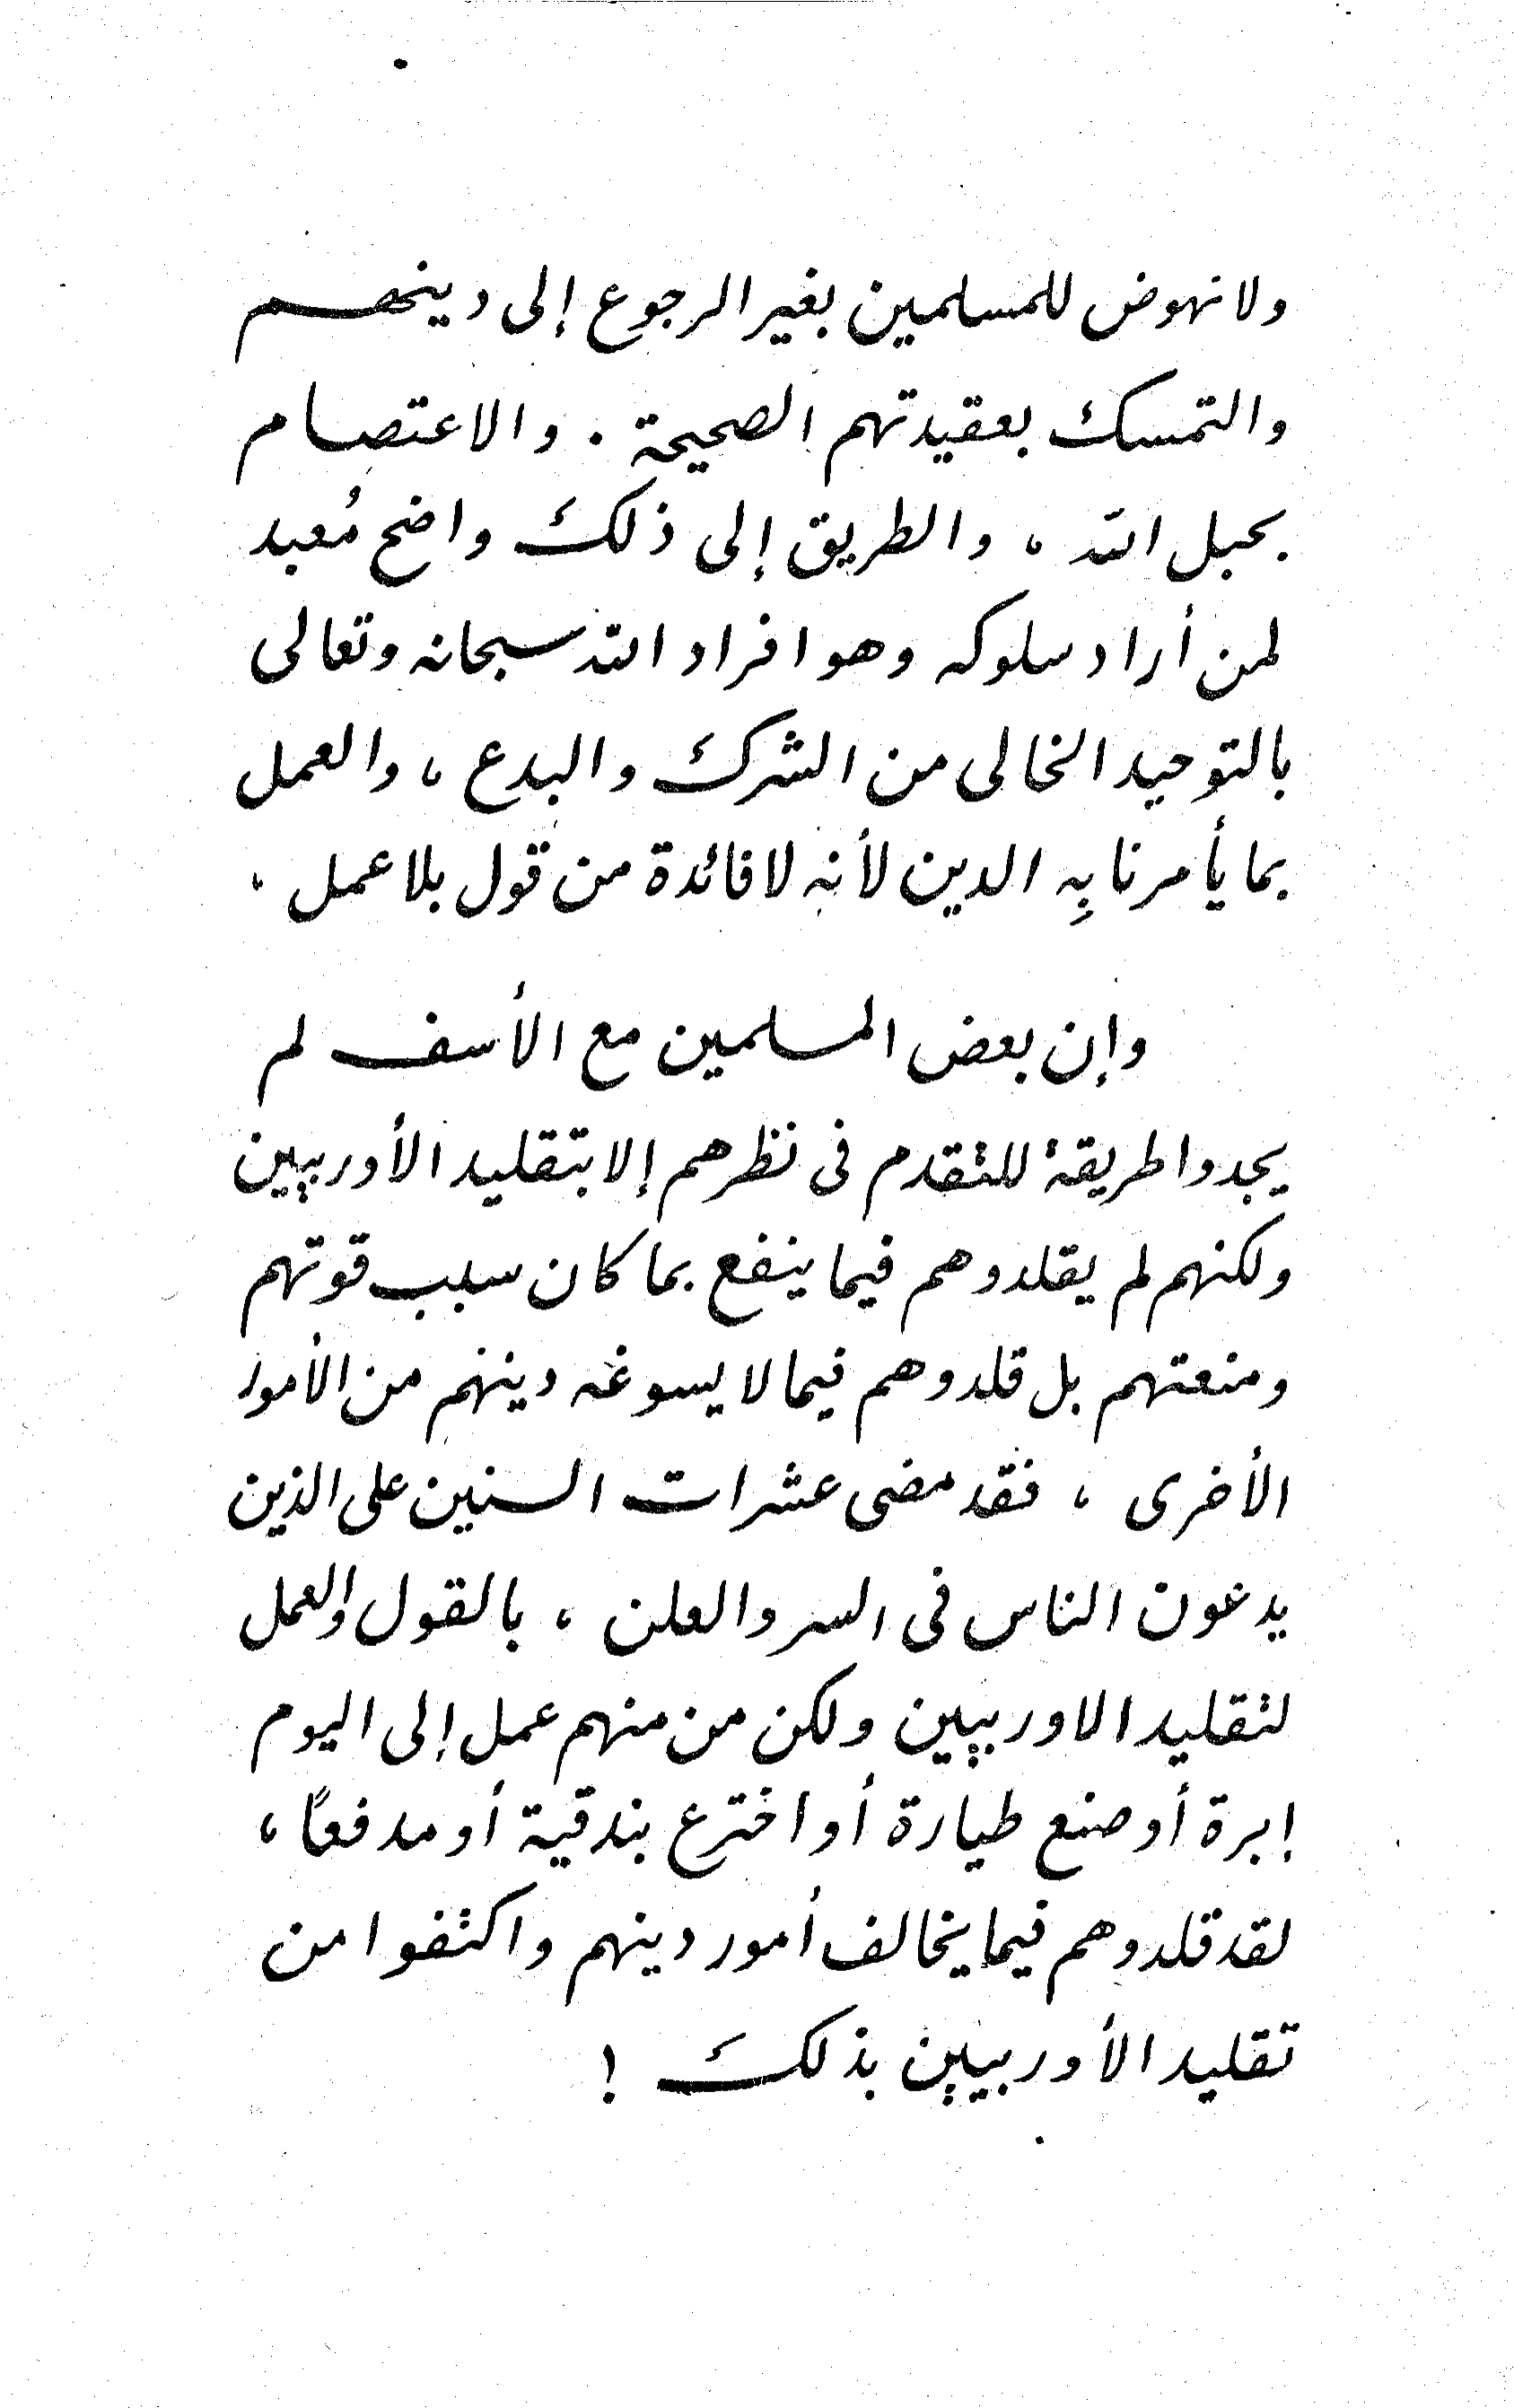 ولا نهوض للمسلمين بغير الرجوع إلى دينهم
والتمسك بعقيدتهم الصحيحة . والاعتصام
بحبل الله ، والطريق إلى ذلك واضح مُعبد
لمن أراد سلوكه وهو افراد الله سبحانه وتعالى
بالتوحيد الخالى من الشرك والبدع ، والعمل
بما يأمرنا بِه الدين لأنه لا فائدة من قول بلا عمل .
وإن بعض المسلمين مع الأسف لم
يجدوا طريقة للتقدم فى نظرهم إلا بتقليد الأوربيين
ولكنهم لم يقلدوهم فيما ينفع بما كان سبب قوتهم
ومنعتهم بل قلدوهم فيما لا يسوغه دينهم من الأمور
الأخرى ، فقد مضى عشرات السنين على الذين
يدعون الناس فى السر والعلن ، بالقول والعمل
لتقليد الاوربيين ولكن من منهم عمل إلى اليوم
إبرة أو صنع طيارة أو اخترع بندقية أو مدفعًا ،
لقد قلدوهم فيما يخالف أمور دينهم واكتفوا من
تقليد الأوربيين بذلك !